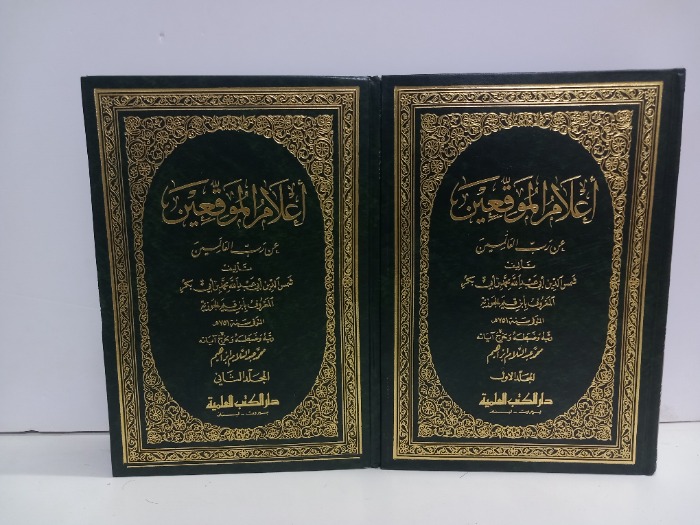 أعلام الموقعين
عن رب العالمين
تأليف
شمس الدين أبي عبد الله محمد بن أبي بكر
المعروف بابن قيم الجوزية
المتوفى سنة ٧٥١هـ
رتبه وضبطه وخرج آياته
محمد عبد السلام إبراهيم
المجلد الأول
دار الكتب العلمية
بيروت - لبنان
أعلام الموقعين
عن رب العالمين
تأليف
شمس الدين أبي عبد الله محمد بن أبي بكر
المعروف بابن قيم الجوزية
المتوفى سنة ٧٥١هـ
رتبه وضبطه وخرج آياته
محمد عبد السلام إبراهيم
المجلد الثاني
دار الكتب العلمية
بيروت - لبنان